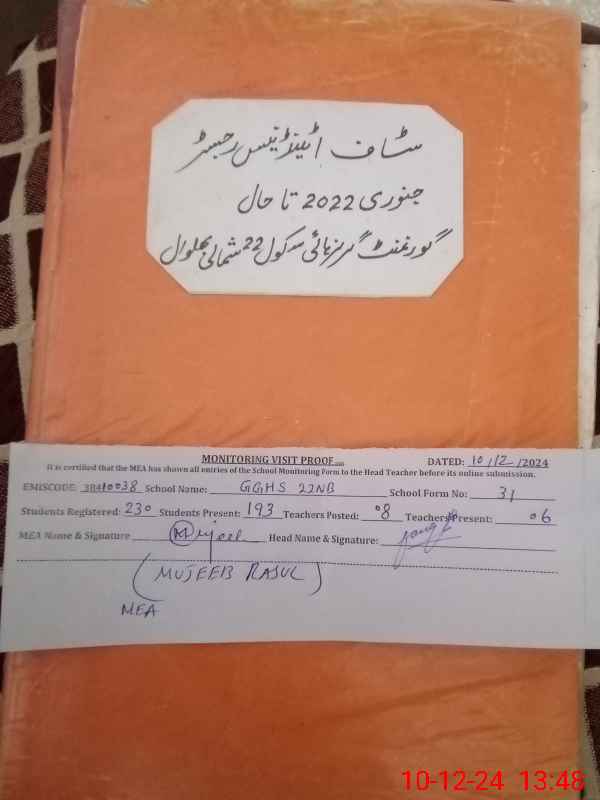 سٹاف اٹینڈینس رجسٹر
جنوری 2022 تا حال
گورنمنٹ گرلز ہائی سکول 22 شمالی بھلوال
MONITORING VISIT PROOF
DATED: 10/12/2024
It is certified that the MEA has shown all entries of the School Monitoring Form to the Head Teacher before its online submission.
EMISCODE: 38410038 School Name: GGHS 22NB School Form No: 31
Students Registered: 230 Students Present: 193 Teachers Posted: 08 Teachers Present: 06
MEA Name & Signature Mujeeb Head Name & Signature:
(MUJEEB RASUL)
MEA
10-12-24 13:48